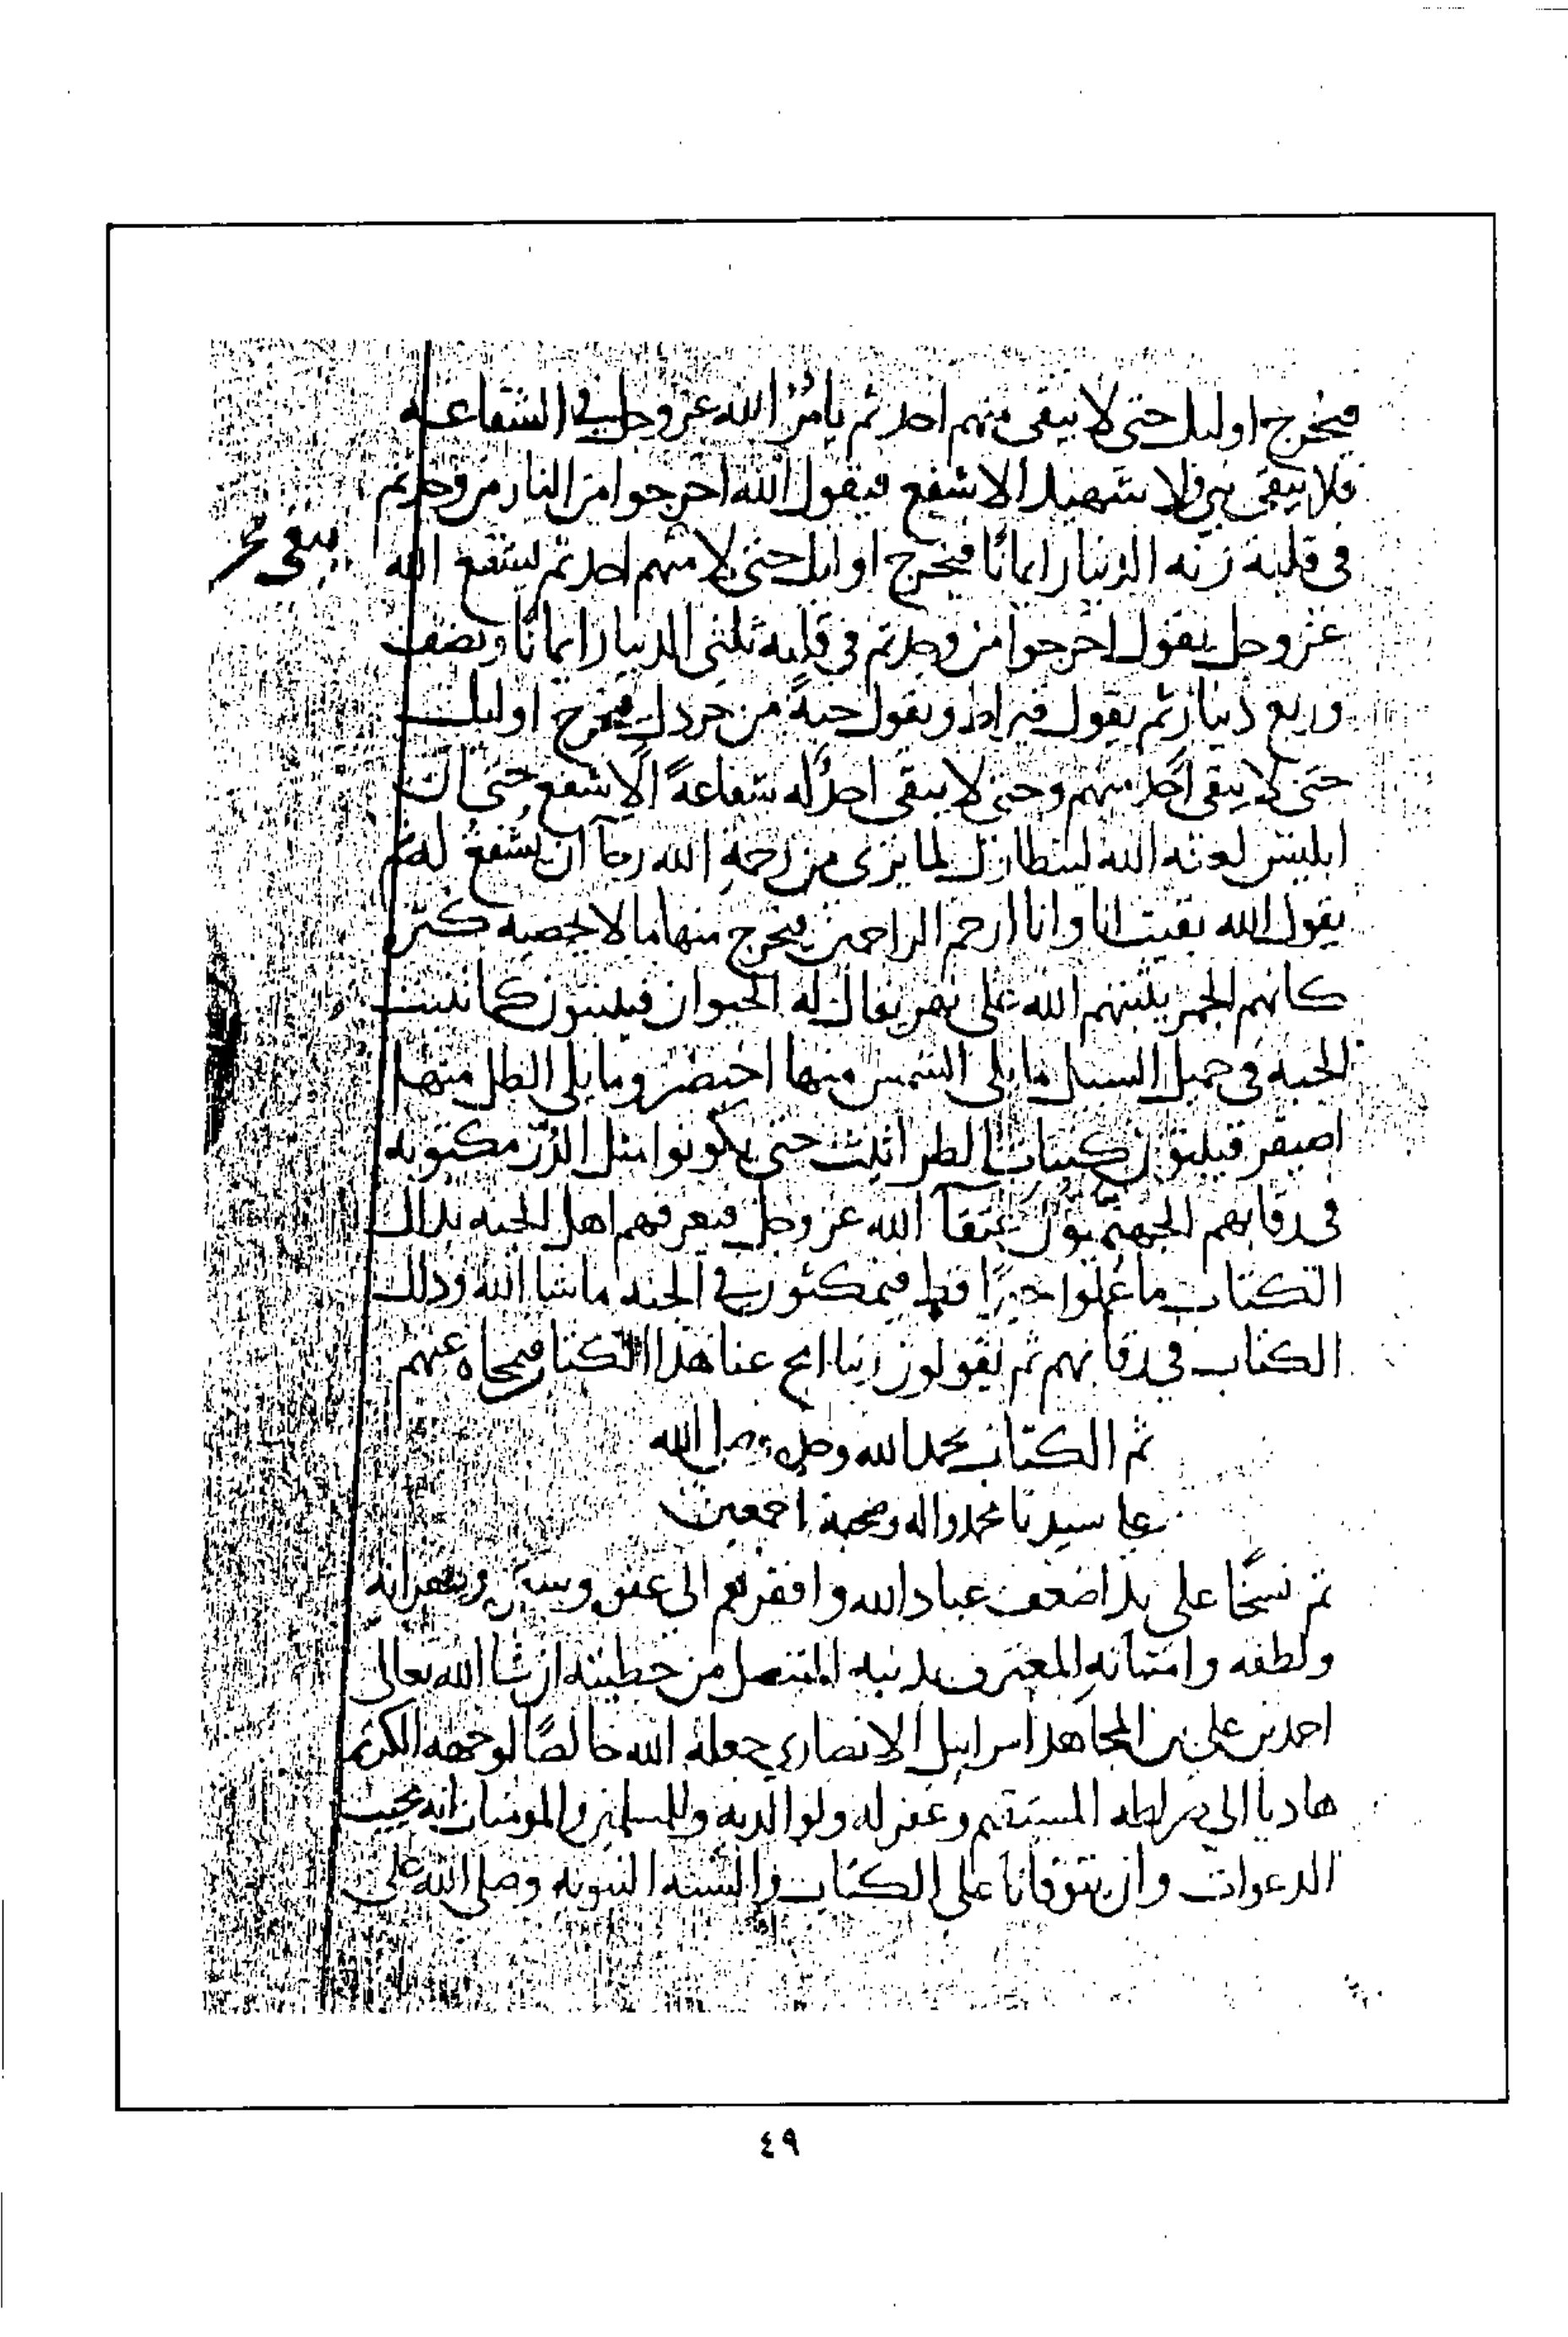 فيخرج اوليك حتى لا يبقى منهم احد ثم يامر الله عز وجل في الشفاعه
فلا يبقى نبي ولا شهيد الا شفع فيقول الله اخرجوا من النار من وجدتم
في قلبه زنه الدينار ايمانًا فيخرج اوليك حتى لا منهم احد ثم يشفع الله
يبقى
عز وجل يقول اخرجوا من وجدتم في قلبه ثلثي الدينار ايمانًا ونصف
وربع دينار ثم يقول قيراط ويقول حبةً من خردل فيخرج اوليك
حتى لا يبقى احد منهم وحتى لا يبقى احدٌ له شفاعةً الا شفع حتى ان
ابليس لعنه الله ليتطاول لما يرى من رحمة الله رجآ ان يشفع له ثم
يقول الله بقيت انا وانا ارحم الراحمين فيخرج منها ما لا يحصيه كثرة
كانهم الحمم ينبتهم الله على نهر يقال له الحيوان فينبتون كما تنبت
الحبه في حميل السيل ما يلي الشمس منها اخيضر وما يلي الظل منها
اصيفر فينبتون كنبات الطراثيث حتى يكونوا مثل الذر مكتوبه
في رقابهم الجهنميون عتقآ الله عز وجل فيعرفهم اهل الجنه بذلك
الكتاب ما عملوا خيرًا قط فيمكثون في الجنه ما شا الله وذلك
الكتاب في رقابهم ثم يقولون ربنا امح عنا هذا الكتاب فيمحاه عنهم
تم الكتاب بحمد الله وصلى الله
على سيدنا محمد واله وصحبه اجمعين
تم نسخًا على يد اضعف عباد الله وافقرهم الى عفوه
ولطفه وامتنانه المعترف بذنبه المتنصل من خطيئته ان شا الله تعالى
احمد بن علي بن المجاهد اسراييل الانصاري جعله الله خالصًا لوجهه الكريم
هاديا الى صراطه المستقيم وغفر له ولوالديه وللمسلمين والمومنات انه مجيب
الدعوات وان يتوفانا على الكتاب والسنه النبويه وصلى الله على
٤٩